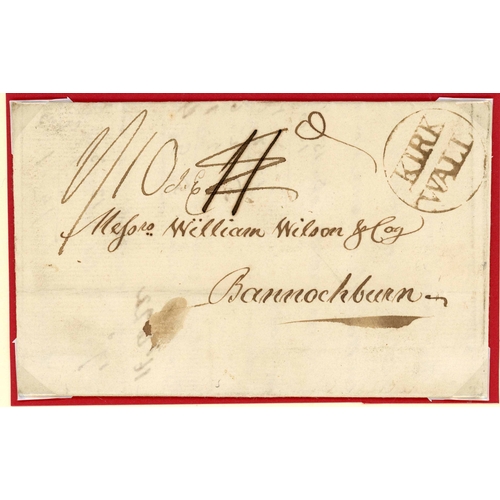 KIRK
WALL
Messrs. William Wilson & Coy
Bannockburn